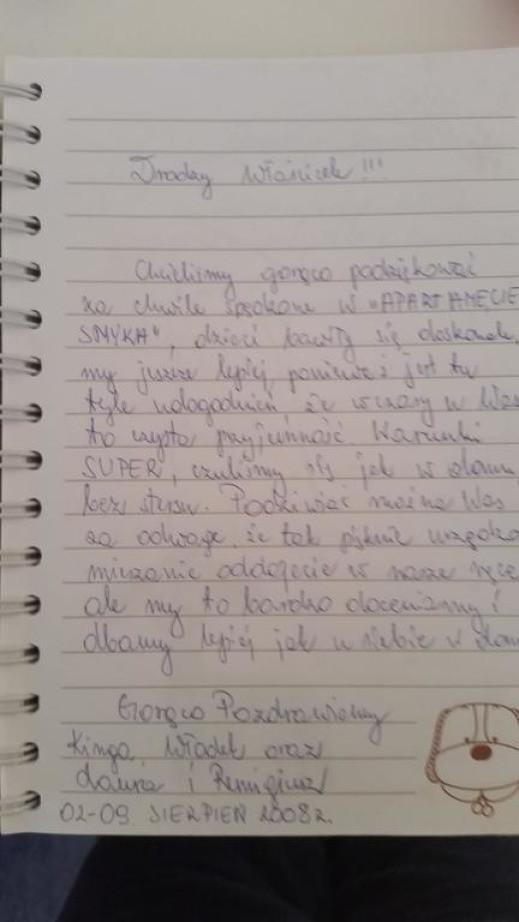 Drodzy Właściciele!!!
Chcieliśmy gorąco podziękować
za chwile spędzone w "APARTAMĘCIE
SMYKA", dzieci bawiły się doskonale,
my jeszcze lepiej, ponieważ jest tu
tyle udogodnień, że wczasy w
to czysta przyjemność. Warunki
SUPER, czuliśmy się jak w domu,
bez stresu. Podziwiać można Was
za odwagę, że tak pięknie
mieszkanie oddajecie w nasze ręce
ale my to bardzo doceniamy i
dbamy lepiej jak u siebie w dom
Gorąco Pozdrawiamy
Kinga, Władek oraz
i Remigiusz
02-09. SIERPIEŃ 2008r.